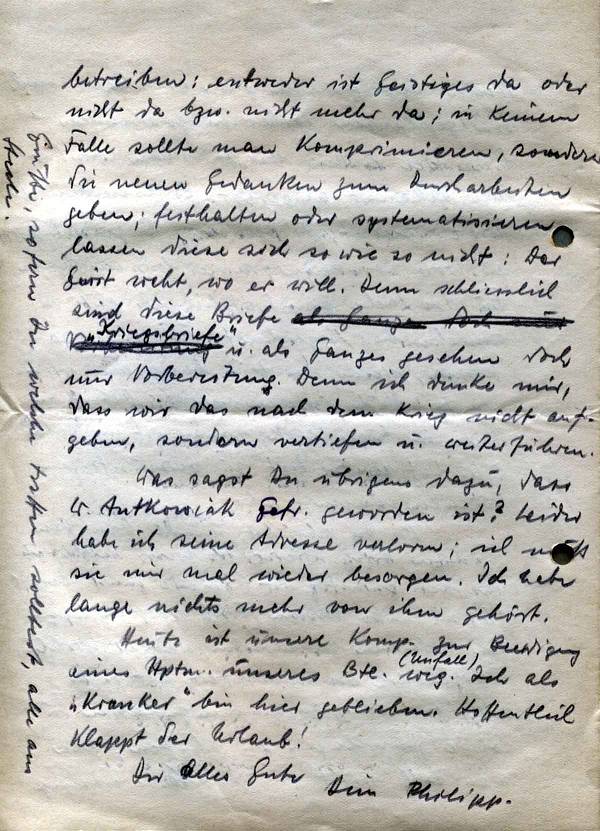 betreiben: entweder ist Geistiges da oder
nicht da bzw. nicht mehr da; in keinem
Falle sollte man komprimieren, sondern
die neuen Gedanken zum Durcharbeiten
geben; festhalten oder systematisieren
lassen diese sich so wie so nicht: Der
Geist weht, wo er will. Denn schliesslich
sind diese Briefe als Ganzes doch nur
"Kriegsbriefe"
u. als Ganzes gesehen doch
nur Vorbereitung. Denn ich denke mir,
dass wir das nach dem Krieg nicht auf-
geben, sondern vertiefen u. weiterführen.
Was sagst Du übrigens dazu, dass
W. Autkowiak Gefr. geworden ist? Leider
habe ich seine Adresse verloren; ich muss
sie mir mal wieder besorgen. Ich habe
lange nichts mehr von ihm gehört.
Heute ist unsere Komp. zur Beerdigung
eines Hptm. unseres Btl. (Unfall) weg. Ich als
"Kranker" bin hier geblieben. Hoffentlich
klappt der Urlaub!
Dir alles Gute Dein Philipp.
sofern Du welche treffen solltest, alle aus